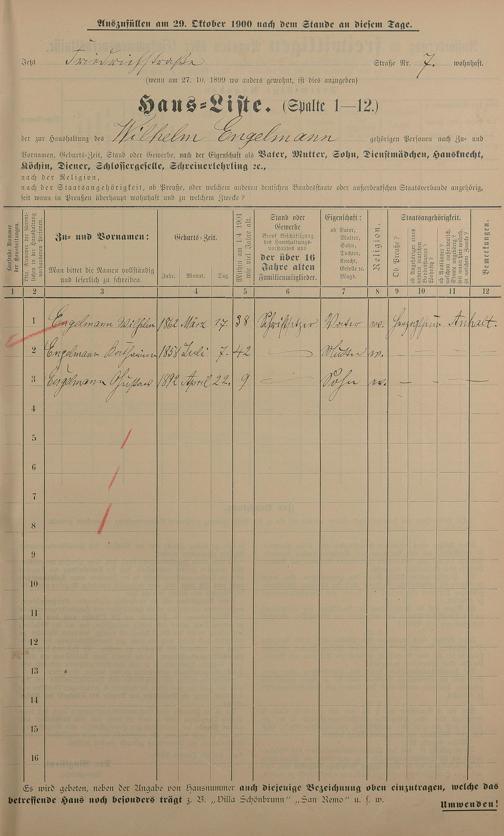 Auszufüllen am 29. Oktober 1900 nach dem Stande an diesem Tage.
Jetzt Friedrichstraße Straße Nr. 7. wohnhaft.
(wenn am 27. 10. 1899 wo anders gewohnt, ist dies anzugeben)
Haus-Liste. (Spalte 1—12.)
der zur Haushaltung des Wilhelm Engelmann gehörigen Personen nach Zu- und
Vornamen, Geburts-Zeit, Stand oder Gewerbe, nach der Eigenschaft als Vater, Mutter, Sohn, Dienstmädchen, Hausknecht,
Köchin, Diener, Schlossergeselle, Schreinerlehrling ꝛc.,
nach der Religion,
nach der Staatsangehörigkeit, ob Preuße, oder welchem anderen deutschen Bundesstaate oder außerdeutschen Staatsverbande angehörig,
seit wann in Preußen überhaupt wohnhaft und zu welchem Zwecke?
Zu- und Vornamen:
Man bittet die Namen vollständig
und leserlich zu schreiben.
Geburts-Zeit.
Jahr. Monat. Tag.
Stand oder
Gewerbe
der über 16
Jahre alten
Familienmitglieder.
Eigenschaft:
ob Vater,
Mutter,
Sohn,
Tochter,
Knecht,
Geselle u.
Magd.
Religion.
Staatsangehörigkeit.
Ob Preuße?
Bemerkungen.
1 2 3 4 5 6 7 8 9 10 11 12
1 Engelmann Wilhelm 1862 März 17. 38 Schriftsetzer Vater Anhalt.
2 Engelmann 1858 Juli 7. 42 — Mutter
3 Engelmann Gustav 1892 April 22. 9 — Sohn — — —
4
5
6
7
8
9
10
11
12
13
14
15
16
Es wird gebeten, neben der Angabe von Hausnummer auch diejenige Bezeichnung oben einzutragen, welche das
betreffende Haus noch besonders trägt z. B. „Villa Schönbrunn" „San Remo" u. s. w.
Umwenden!